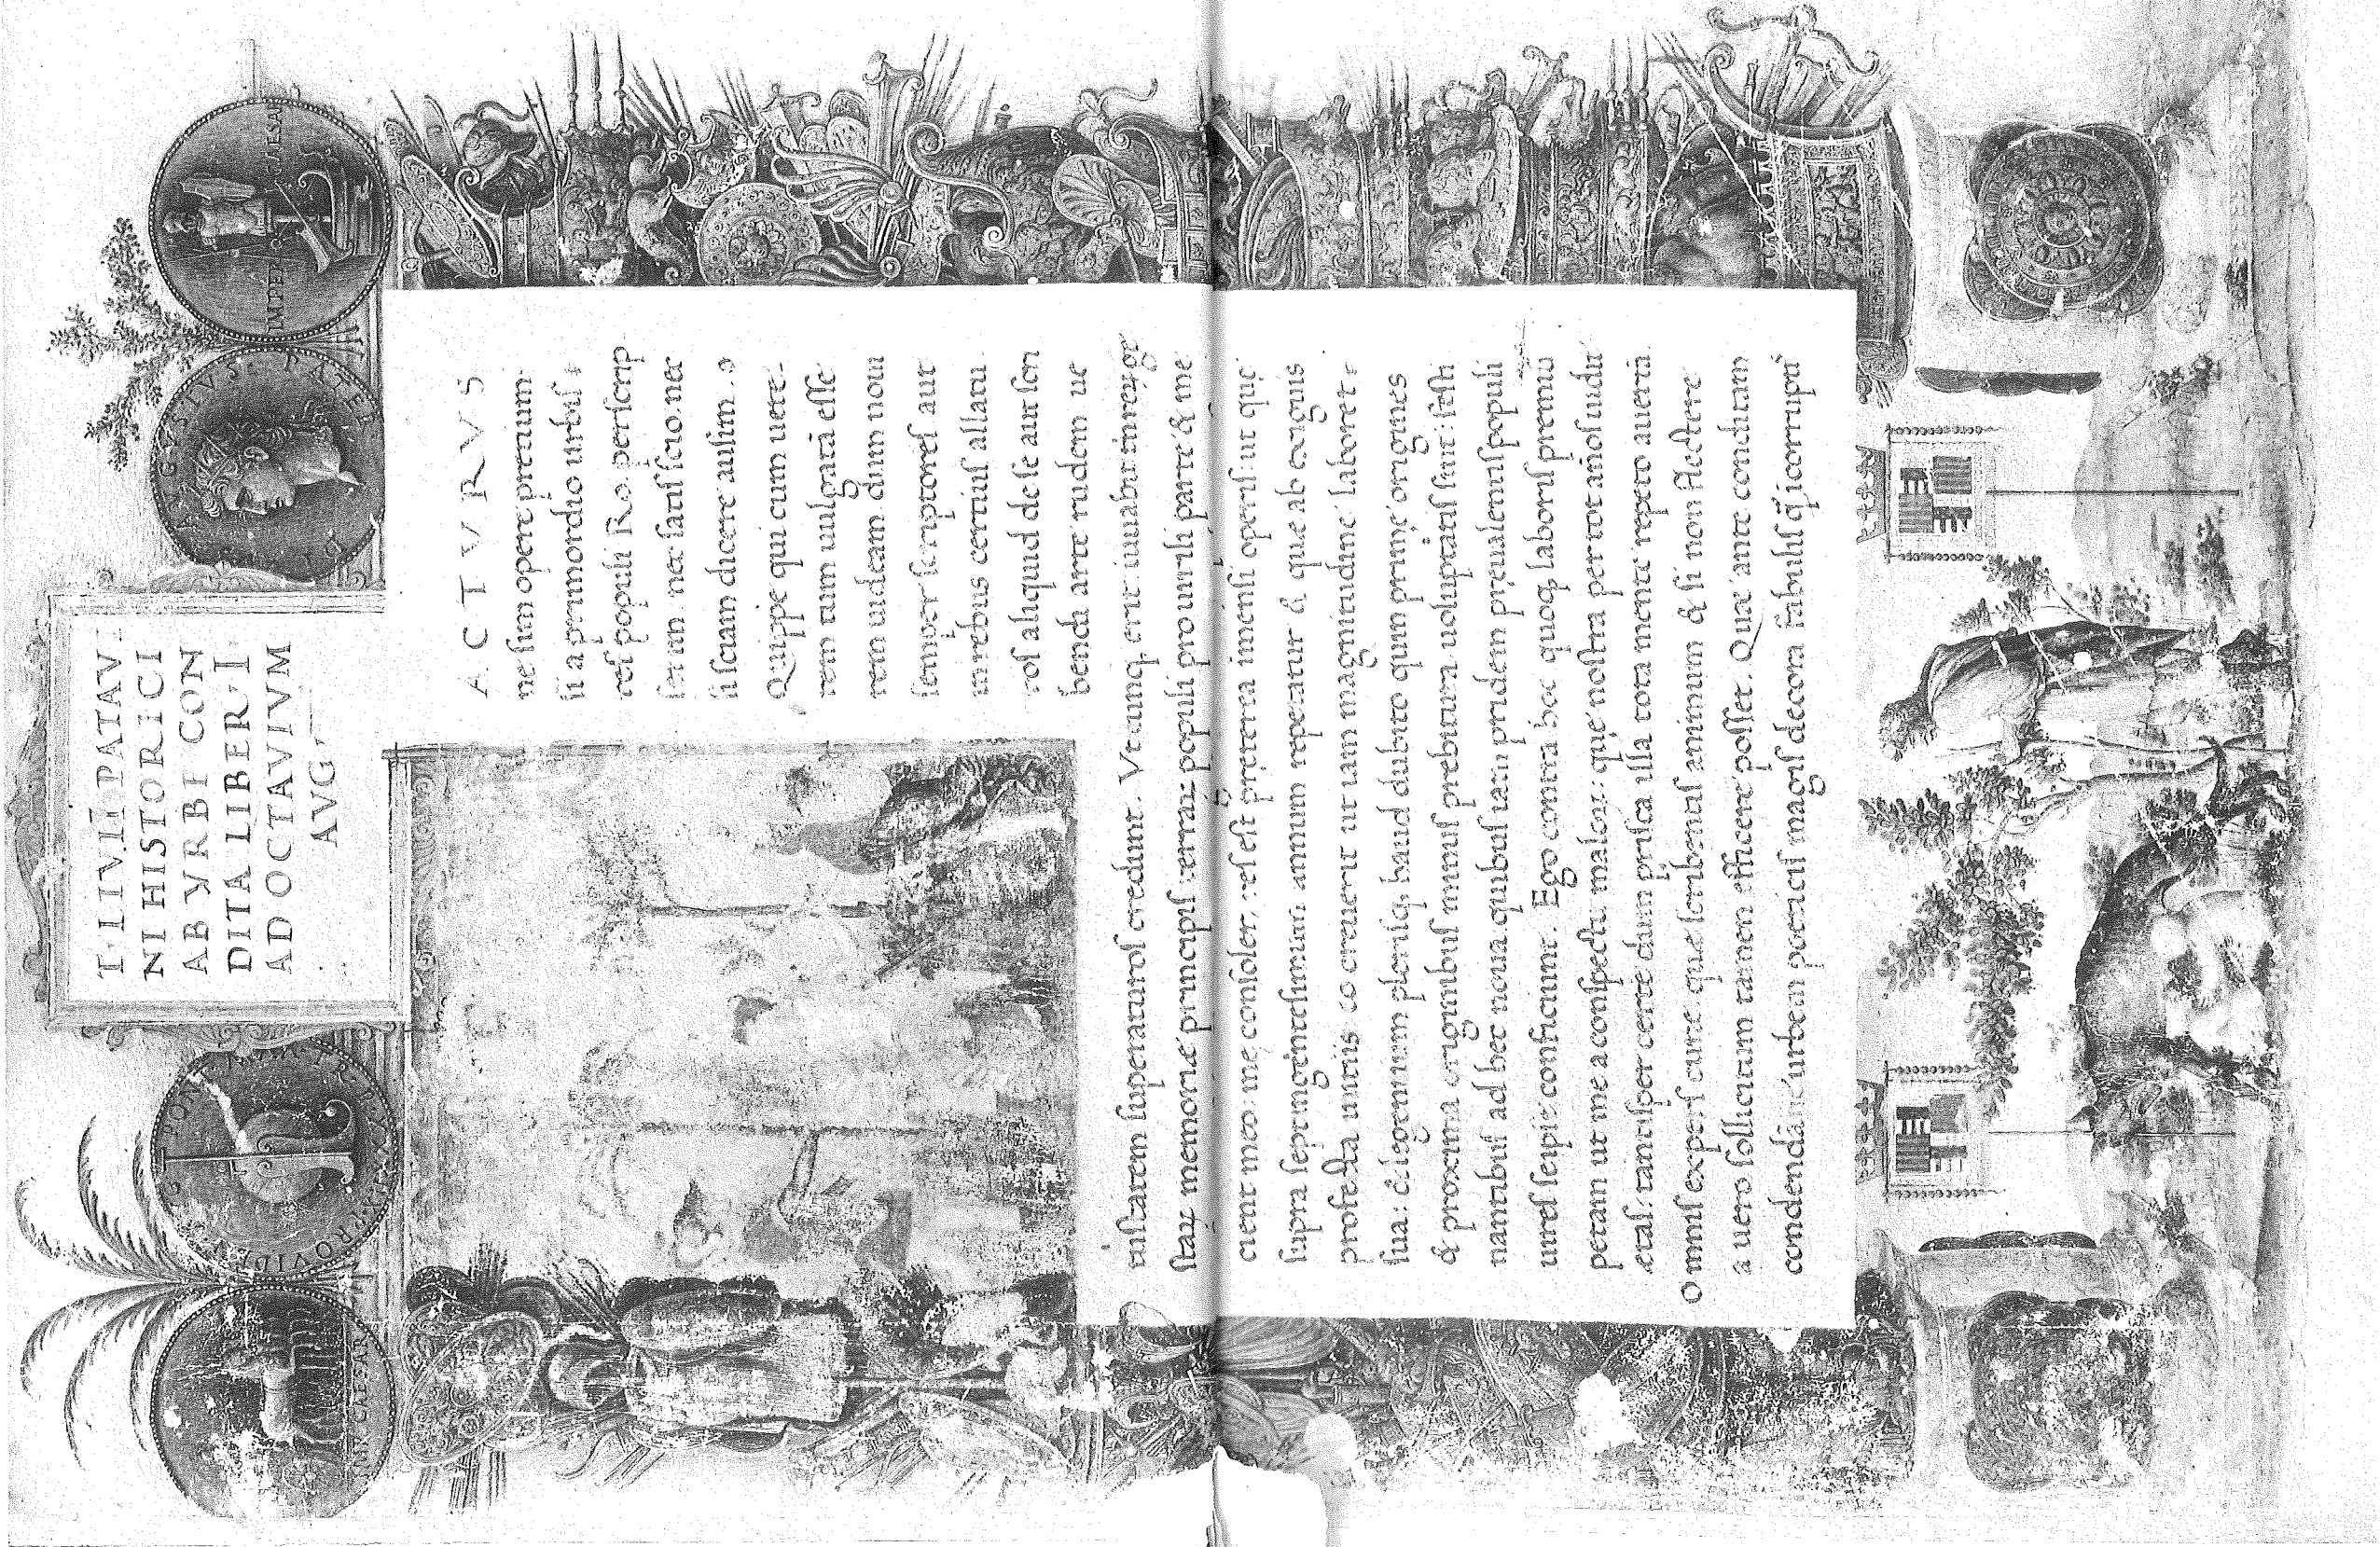 T·LIVII PATAVI
NI HISTORICI
AB VRBE CON
DITA LIBER·I·
AD OCTAVIVM
AVG,
IMP CAESAR
PROVIDE PON
AVGVSTVS·PATER
IMPERA CAESAR
ACTVRVS
ne sim opere pretium
si a primordio urbis
res populi Ro. perscrip
serim nec satis scio, nec
si sciam dicere ausim.
Quippe qui cum uete-
rem tum uulgatā esse
rem uideam dum noui
semper scriptores aut
in rebus certius allatu
ros aliquid de se aut scri
benda arte rudem ue
tustatem superaturos credunt. Vtcunq, erit iuuabit
stae memorie principis terrae populi pro uirili parte & me
cient meo me consoler, res est preterea imensi operis: ut que
supra septingentesimum annum repetatur & que ab exiguis
profecta initiis eo creuerit ut iam magnitudine laboret
sua: & legentium plerisq, haud dubito quin prime origines
& proxima originibus minus prebitura uoluptatis sint: festi
nantibus ad hec noua quibus iam pridem preualentis populi
uires seipse conficiunt. Ego contra hoc quoq, laboris premiū
petam ut me a conspectu malorū que nostra per tot años uidit
etas: tantisper certe dum prisca illa tota mente repeto auertā
Omnis expers cure que scribentis animum & si non flectere
a uero sollicitum tamen efficere posset. Quae ante conditam
condendāue urbem poeticis magis decora fabulis q̄ icorruptis